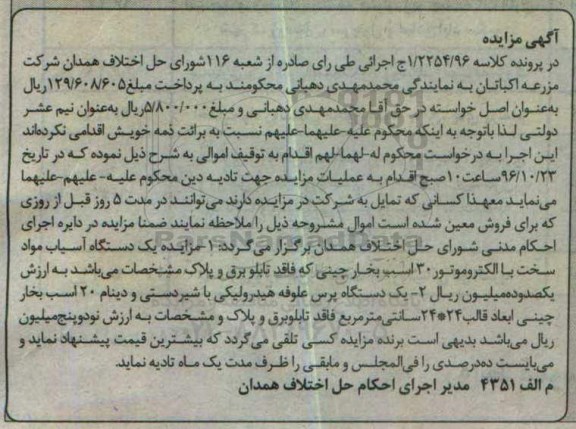 آگهی مزایده
در پرونده کلاسه ۱/۲۲۵۴/۹۶ج اجرائی طی رای صادره از شعبه ۱۱۶شورای حل اختلاف همدان شرکت
مزرعه اکباتان به نمایندگی محمدمهدی دهبانی محکومند به پرداخت مبلغ۱۲۹/۶۰۸/۶۰۵ریال
به‌عنوان اصل خواسته در حق آقا محمدمهدی دهبانی و مبلغ۵/۸۰۰/۰۰۰ریال به‌عنوان نیم عشر
دولتی لذا باتوجه به اینکه محکوم علیه-علیهما-علیهم نسبت به برائت ذمه خویش اقدامی نکرده‌اند
این اجرا به درخواست محکوم له-لهما-لهم اقدام به توقیف اموالی به شرح ذیل نموده که در تاریخ
۹۶/۱۰/۲۳ساعت۱۰صبح اقدام به عملیات مزایده جهت تادیه دین محکوم علیه- علیهم-علیهما
می‌نماید معهذا کسانی که تمایل به شرکت در مزایده دارند می‌توانند در مدت ۵ روز قبل از روزی
که برای فروش معین شده است اموال مشروحه ذیل را ملاحظه نمایند ضمنا مزایده در دایره اجرای
احکام مدنی شورای حل اختلاف همدان برگزار می‌گردد:۱-مزایده یک دستگاه آسیاب مواد
سخت با الکتروموتور۳۰ اسب بخار چینی که فاقد تابلو برق و پلاک مشخصات می‌باشد به ارزش
یکصدوده‌میلیون ریال ۲- یک دستگاه پرس علوفه هیدرولیکی با شیردستی و دینام ۲۰ اسب بخار
چینی ابعاد قالب۲۴*۲۴سانتی‌مترمربع فاقد تابلوبرق و پلاک و مشخصات به ارزش نودوپنج‌میلیون
ریال می‌باشد بدیهی است برنده مزایده کسی تلقی می‌گردد که بیشترین قیمت پیشنهاد نماید و
می‌بایست ده‌درصدی را فی‌المجلس و مابقی را ظرف مدت یک ماه تادیه نماید.
م الف ۴۳۵۱ مدیر اجرای احکام حل اختلاف همدان